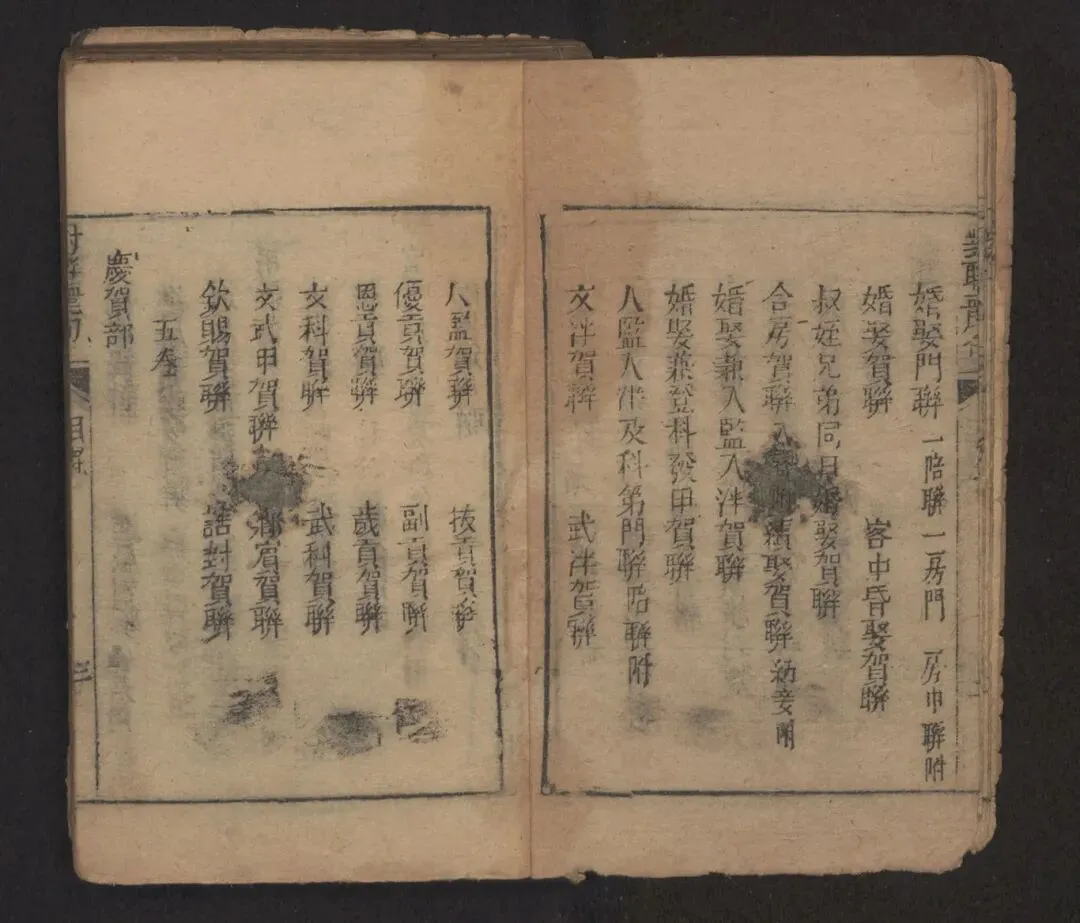 婚娶門聯 一陪聯 一房門 一房中聯附
婚娶賀聯 客中昏娶賀聯
叔姪兄弟同日婚娶賀聯
合房賀聯 入 續娶賀聯 納妾附
婚娶兼入監入泮賀聯
婚娶兼登科發甲賀聯
入監入泮及科第門聯 陪聯附
文泮賀聯 武泮賀聯
入監賀聯 拔貢賀聯
優貢賀聯 副貢賀聯
恩貢賀聯 歲貢賀聯
文科賀聯 武科賀聯
文武甲賀聯 鄉賓賀聯
欽賜賀聯 誥封賀聯
五卷
慶賀部
目錄